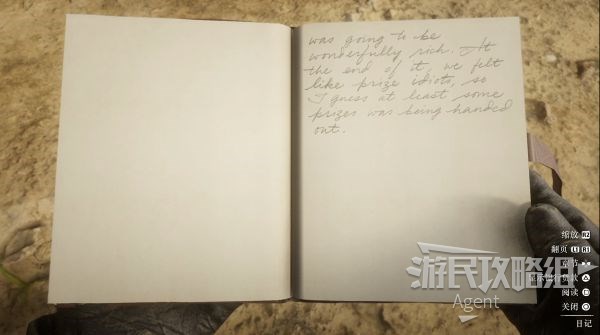 was going to be
wonderfully rich. At
the end of it, we felt
like prize idiots, so
I guess at least some
prizes was being handed
out.
缩放 R2
翻页 L1 R1
阅读
关闭
日记
游民攻略组
Agent